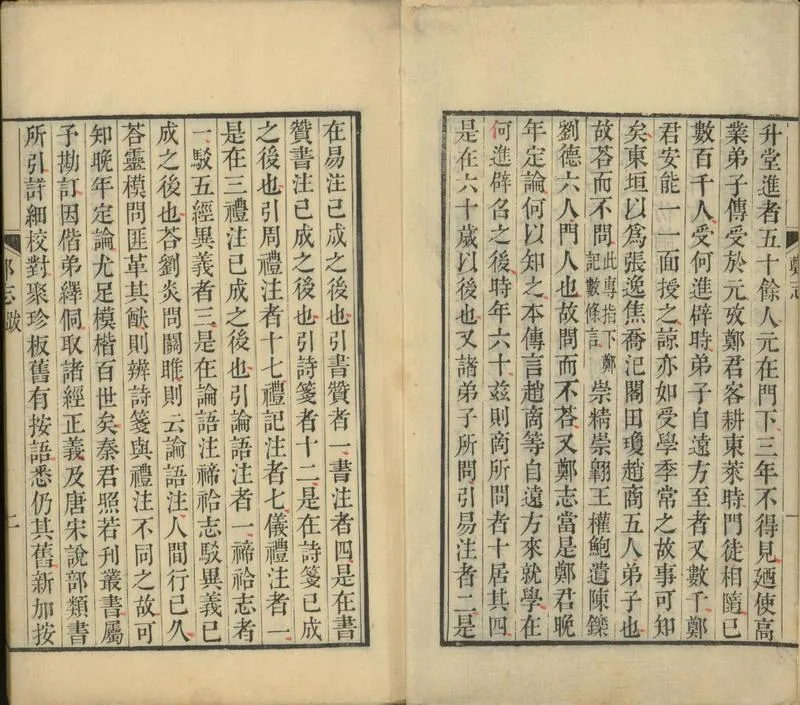 鄭志
一
升堂進者五十餘人元在門下三年不得見廼使高
業弟子傳受於元攷鄭君客耕東萊時門徒相隨已
數百千人受何進辟時弟子自遠方至者又數千鄭
君安能一一面授之諒亦如受學季常之故事可知
矣東垣以爲張逸焦喬汜閣田瓊趙商五人弟子也
故荅而不問此專指下鄭記數條言崇精崇翺王權鮑遺陳鑠
劉德六人門人也故問而不荅又鄭志當是鄭君晚
年定論何以知之本傳言趙商等自遠方來就學在
何進辟名之後時年六十兹則商所問者十居其四
是在六十歲以後也又諸弟子所問引易注者二是
在易注已成之後也引書贊者一書注者四是在書
贊書注已成之後也引詩箋者十二是在詩箋已成
之後也引周禮注者十七禮記注者七儀禮注者一
是在三禮注已成之後也引論語注者一禘祫志者
一駁五經異義者三是在論語注禘祫志駁異義已
成之後也荅劉炎問關雎則云論語注人間行已久
荅靈模問匪革其猷則辨詩箋與禮注不同之故可
知晚年定論尤足模楷百世矣秦君照若刊叢書屬
予挍訂因偕弟繹侗取諸經正義及唐宋說部類書
所引詳細校對聚珍板舊有按語悉仍其舊新加按
鄭志跋
二